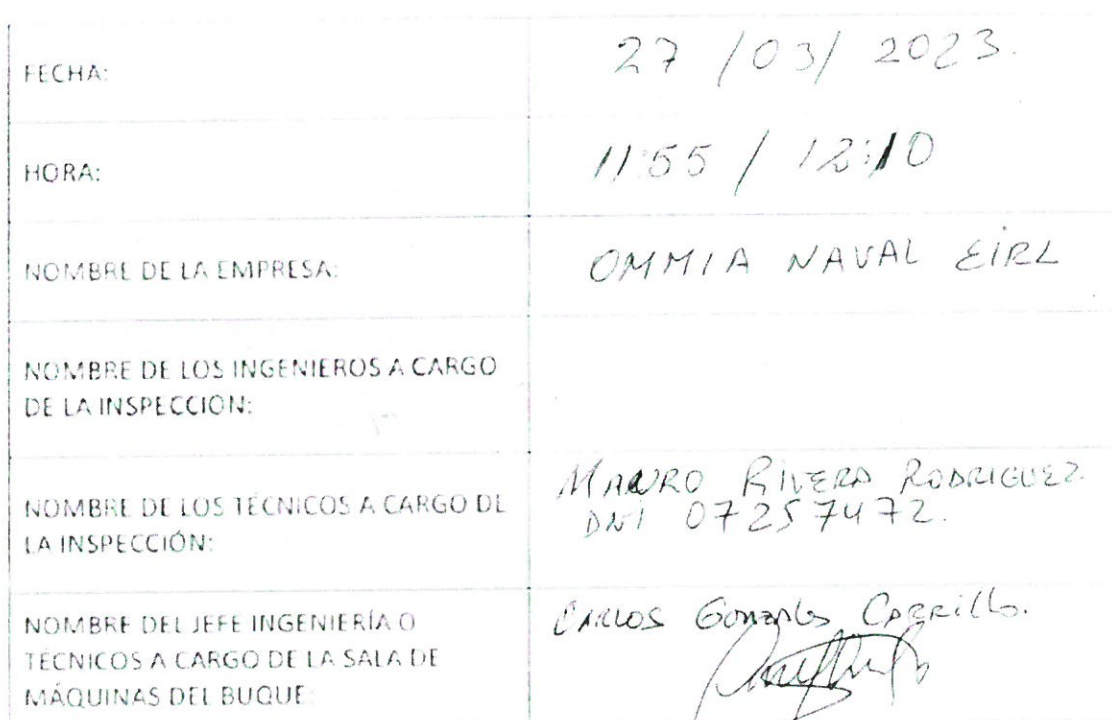 FECHA:
27 /03/ 2023.
HORA:
11:55 / 12:10
NOMBRE DE LA EMPRESA:
OMMIA NAVAL EiRL
NOMBRE DE LOS INGENIEROS A CARGO
DE LA INSPECCION:
NOMBRE DE LOS TÉCNICOS A CARGO DE
LA INSPECCIÓN:
MAURO RIVERA RODRIGUEZ.
DNI 07257472.
NOMBRE DEL JEFE INGENIERÍA O
TÉCNICOS A CARGO DE LA SALA DE
MÁQUINAS DEL BUQUE:
CARLOS Gonzales CARRillo.